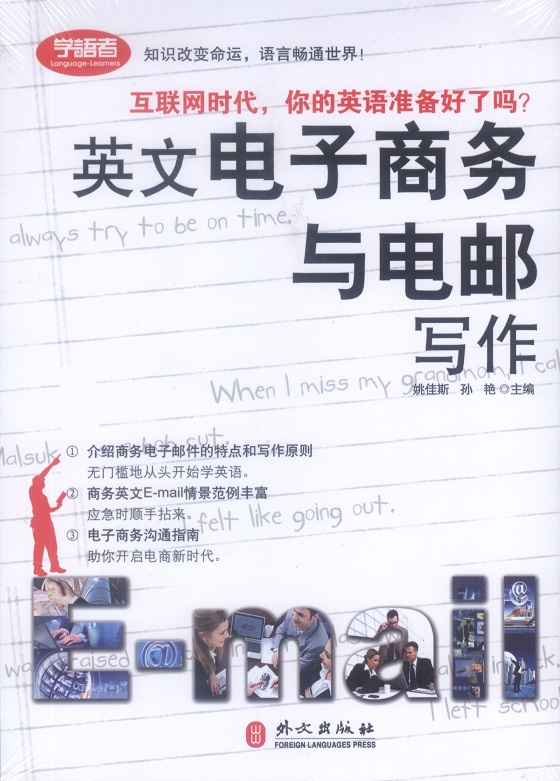 学語者
Language-Learners
知识改变命运，语言畅通世界！
互联网时代，你的英语准备好了吗？
英文电子商务
always try to be on time.
与电邮
写作
When I miss my grandmom, I cal
姚佳斯 孙 艳 ◎主编
Malsuk
a bob cut.
① 介绍商务电子邮件的特点和写作原则
无门槛地从头开始学英语。
② 商务英文E-mail情景范例丰富
应急时顺手拈来。
I felt like going out.
③ 电子商务沟通指南
助你开启电商新时代。
E-mail
was raised
I left school
外文出版社
FOREIGN LANGUAGES PRESS